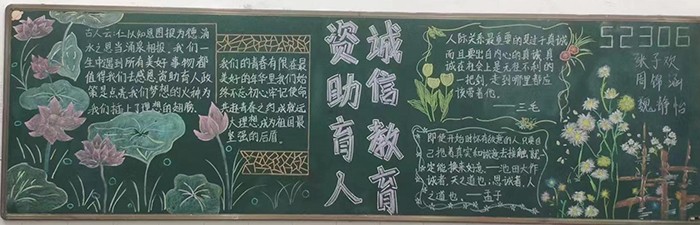 古人云:仁以知恩图报为德,滴
水之恩当涌泉相报。我们一
生中遇到所有美好事物都
值得我们去感恩,资助育人政
策是点亮我们梦想的火神为
我们插上了理想的翅膀。
我们的青春有限在最
美好的年华里我们始
终不忘初心牢记使命
共逛青春之约成就远
大理想,成为祖国最
坚强的后盾。
诚信教育
资助育人
人际关系最重要的莫过于真诚
而且要出自内心的真诚真
诚在社会上是无往不利的
一把剑,走到哪里都应
该带着他。
——三毛
即使开始时怀有敌意的人,只要自
己抱着真实和诚意去接触,就
定能换来好意。——池田大作
诚者,天之道也;思诚者,人
之道也。——孟子
52306
张子欢
周锦涵
魏静怡